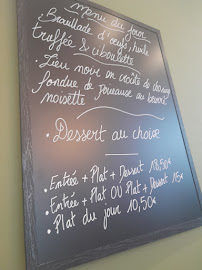 menu du jour
Brouillade d'œufs, huile
truffée & ciboulette
• Lieu noir en croûte de chorizo
fondue de poireaux au beurre
noisette
• Dessert au choix
• Entrée + Plat + Dessert 18,50€
• Entrée + Plat OU Plat + Dessert 15€
• Plat du jour 10,50€